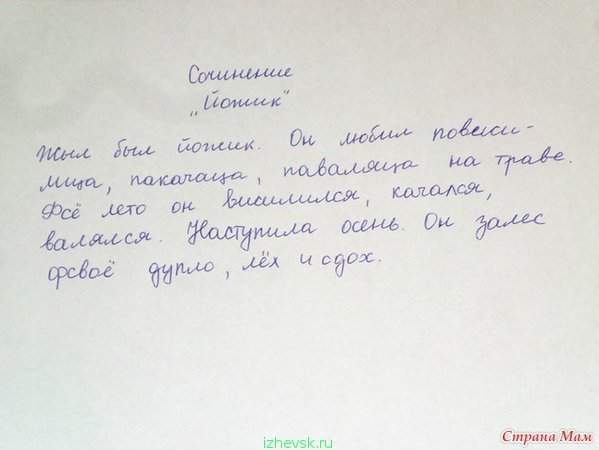 Сочинение
„Йожик"
Жыл был йожик. Он любил повеси-
лица, пакачаца, паваляца на траве.
Фсё лето он висилился, качался,
валялся. Наступила осень. Он залес
фсваё дупло, лёх и сдох.
Страна Мам
izhevsk.ru